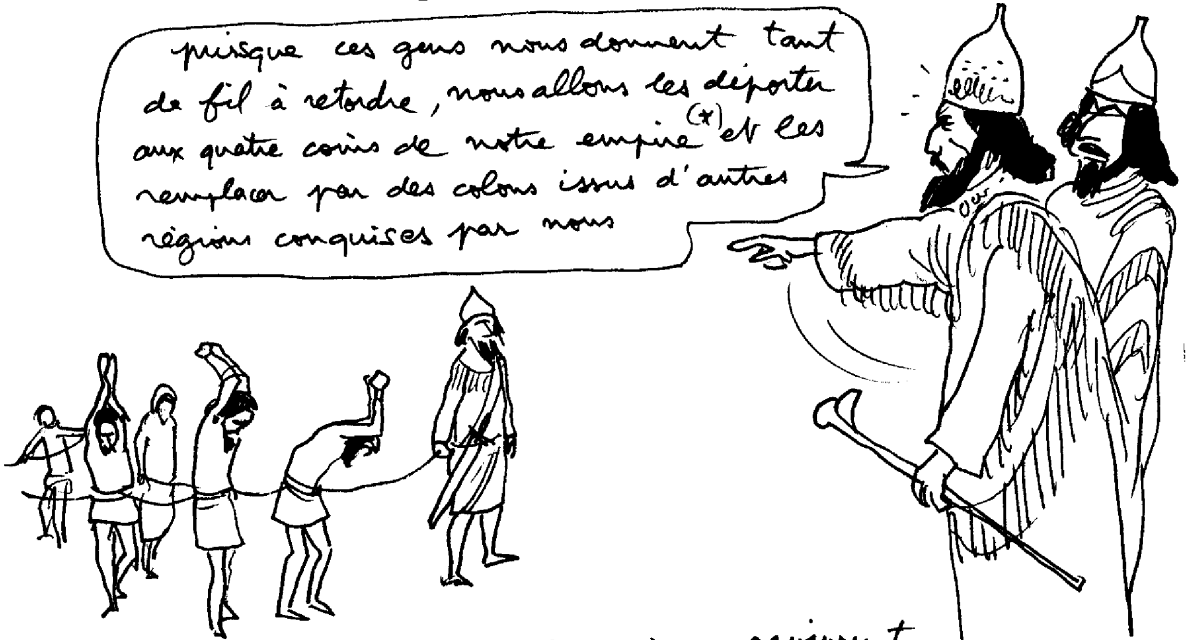 puisque ces gens nous donnent tant
de fil à retordre, nous allons les déporter
aux quatre coins de notre empire (*) et les
remplacer par des colons issus d'autres
régions conquises par nous